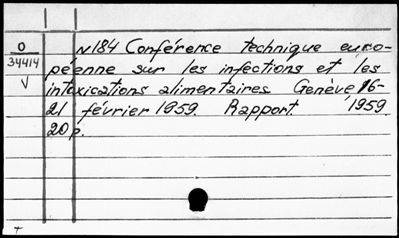 O
34414
V
N184 Conférence technique euro-
péenne sur les infections et les
intoxications alimentaires. Genève, 16-
21 février 1959. Rapport. 1959.
20p.
+